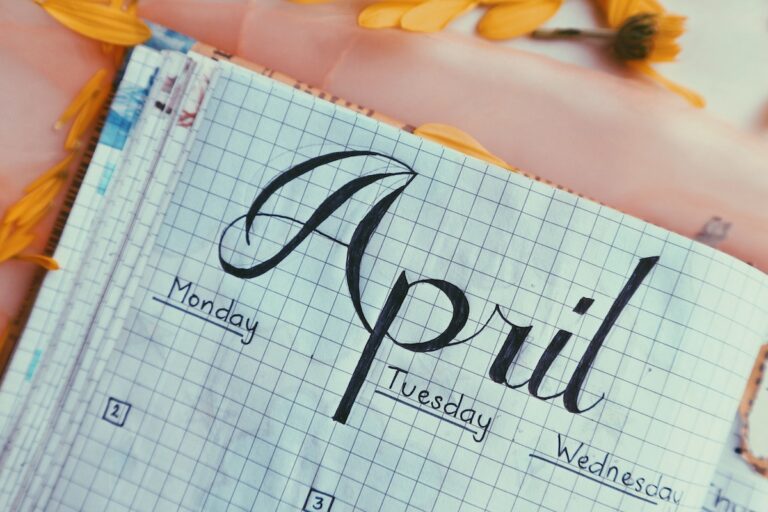 April
Monday
Tuesday
Wednesday
2
3